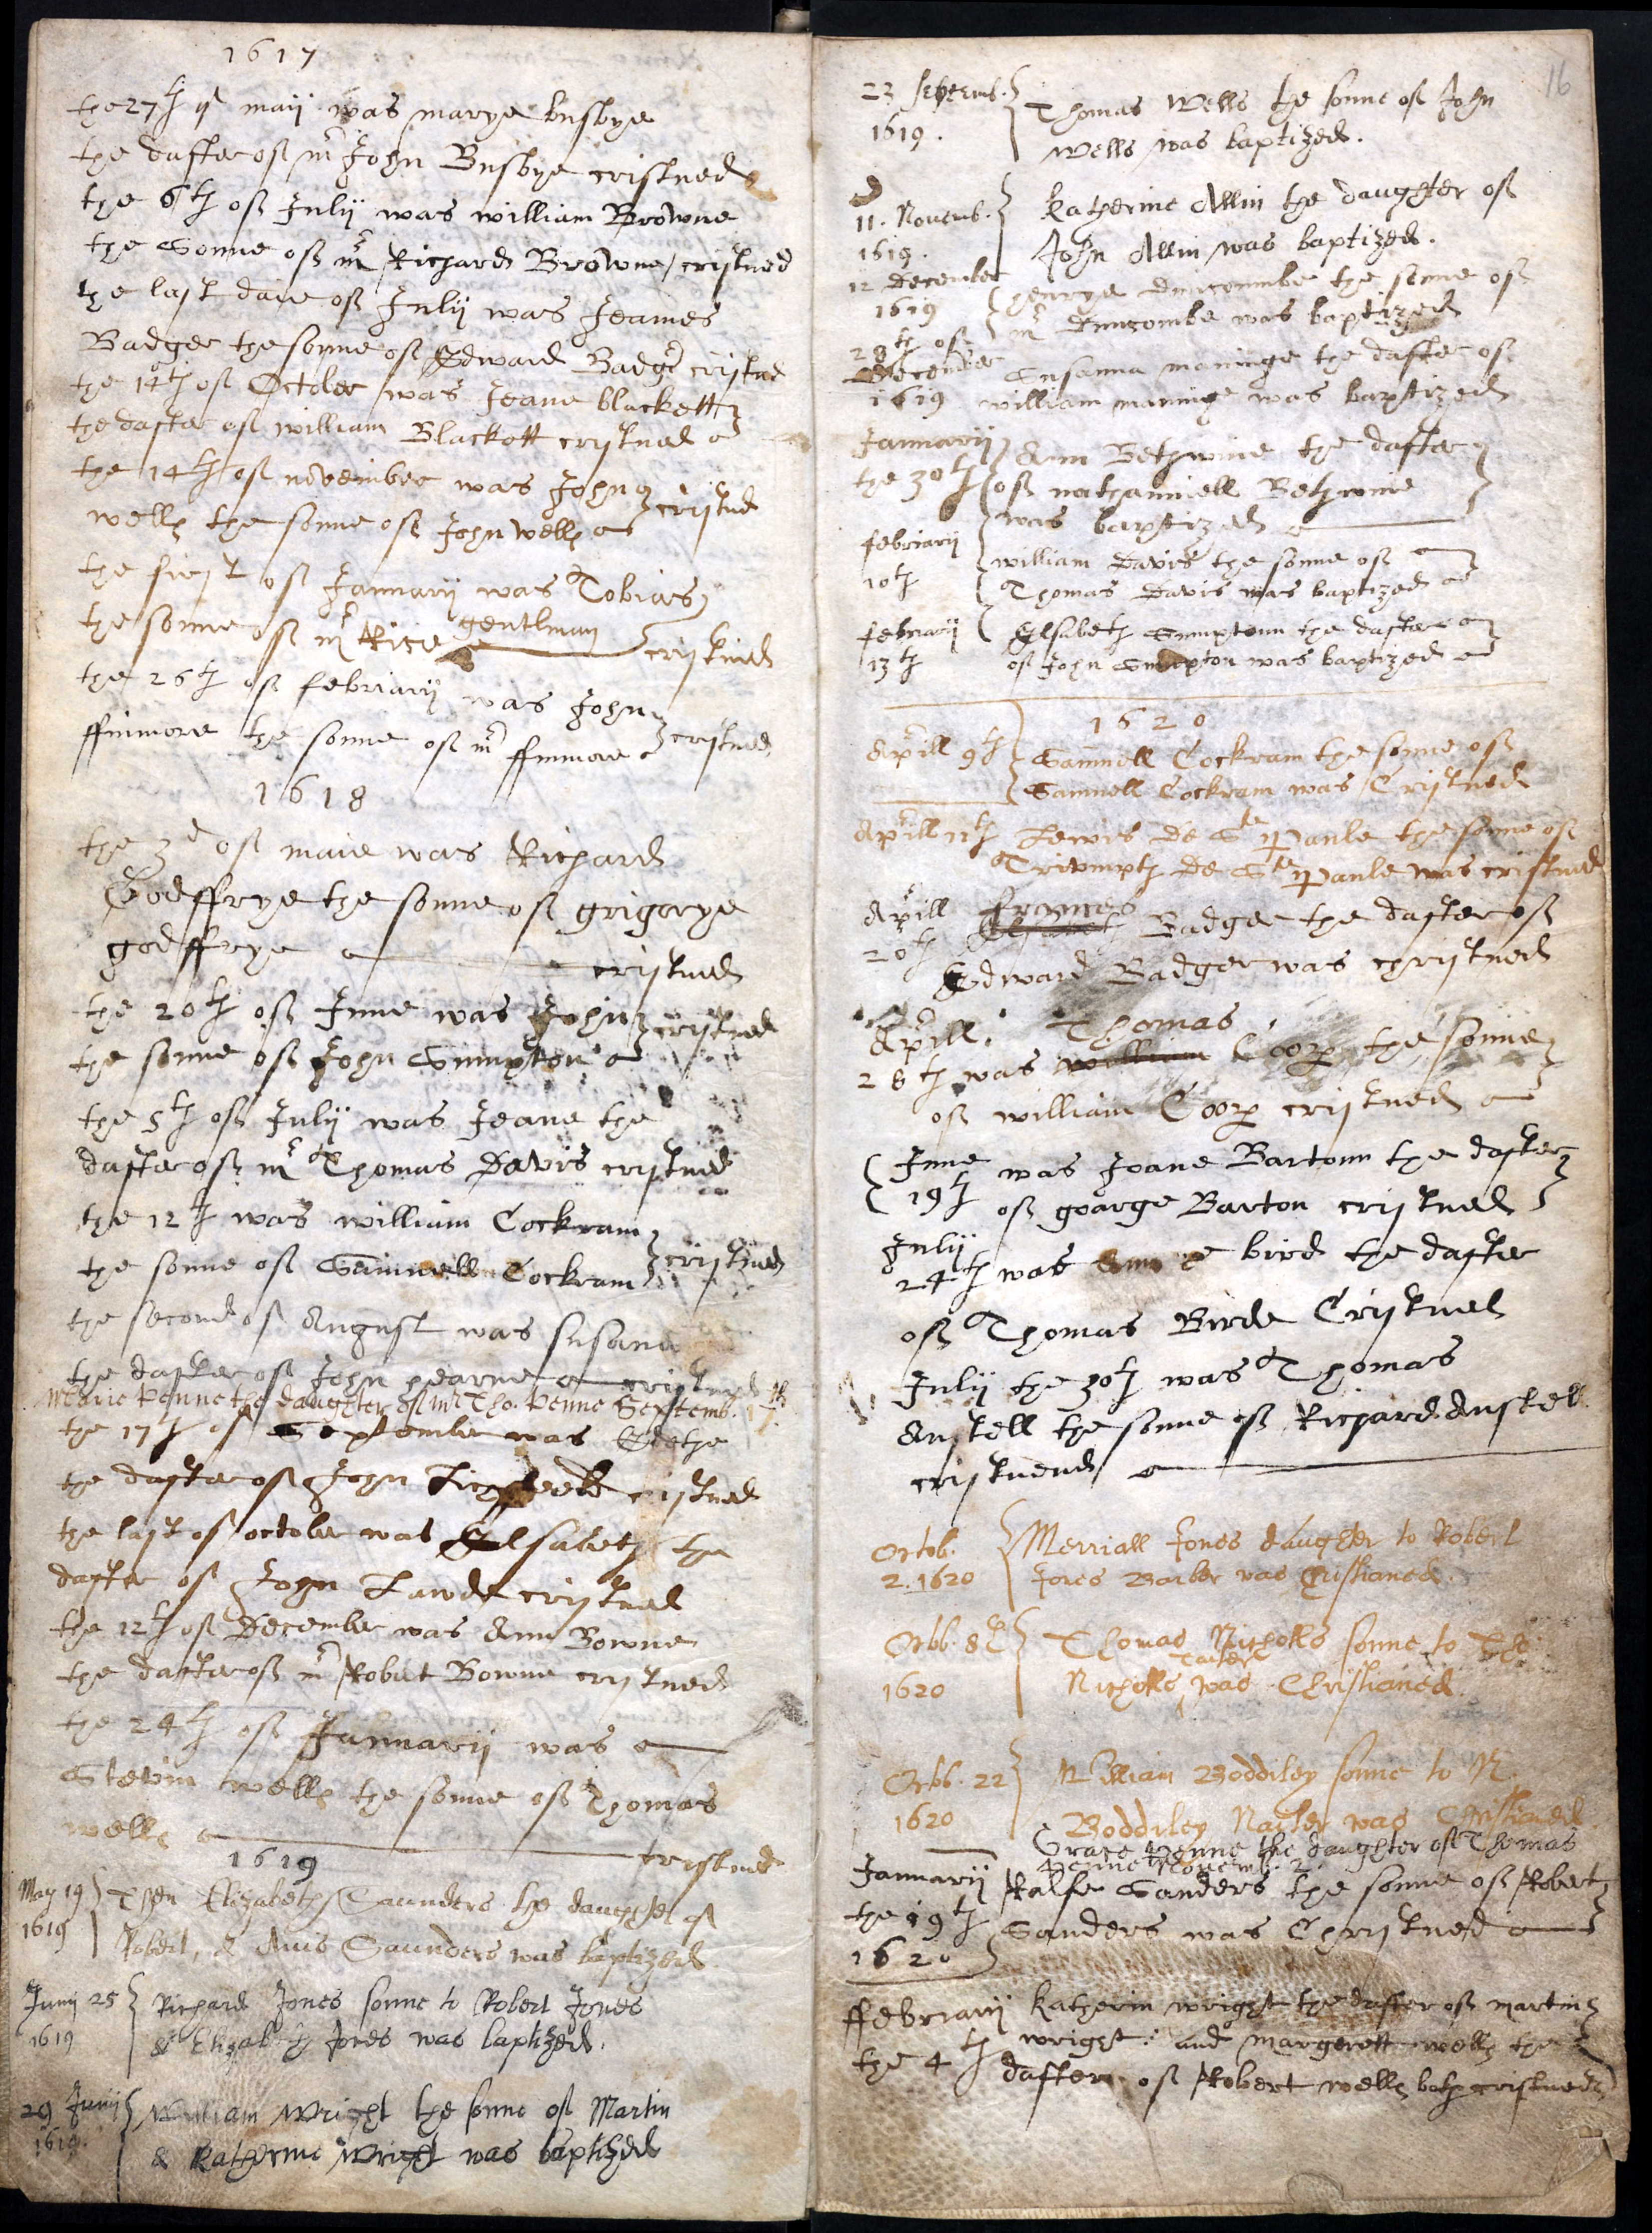 1617
the 27th of maij was marye busbye
the dafter of mr John Busbye cristned
the 6th of Julij was william Browne
the Sonne of mr Richard Browne cristned
the last daie of Julij was Jeames
Badger the sonne of Edward Badgr cristned
the 14th of October was Jeane blackett
the dafter of william Blackett cristned
the 14th of november was John
wells the sonne of John wells cristned
the first of Januarij was Tobias
the sonne of mr Rice gentlman cristned
the 26th of februarij was John
ffinmore the sonne of mr ffinmore cristned
1618
the 3d of maie was Richard
Godffrye the sonne of grigorye
godffrye cristned
the 20th of June was John
the sonne of John Sumpton cristned
the 5th of Julij was Jeane the
dafter of mr Thomas Davis cristned
the 12th was william Cockram
the sonne of Samuell Cockram cristned
the second of August was susana
the dafter of John hearne cristned
Marie Penne the daughter of Mr Tho. Penne Septemb.
the 17th of September was
the dafter of John cristned
the last of october was Elsabeth the
dafter of John Lawde cristned
the 12th of December was Ann Bowne
the dafter of mr Robert Bowne cristned
the 24th of Januarij was
Stevin wells the sonne of Thomas
wells cristned
1619
May 19 Elizabeth Saunders the daughter of
1619 Robert, & Avis Saunders was baptized.
Junij 25 Richard Jones sonne to Robert Jones
1619 & Elizabeth Jones was baptized.
29 Junij William Wright the sonne of Martin
1619. & Katherine Wright was baptized
16
23 Septemb. Thomas Wells the sonne of John
1619. Wells was baptized.
11. Novemb. Katherine Allin the daughter of
1619. John Allin was baptized.
12 December henrye Duncoumbe the sonne of
1619 mr Duncombe was baptized
28th of
December Susanna maninge the dafter of
1619 william maninge was baptized
Januarij Ann Bethwine the dafter
the 30th of nathaniell Bethwine
was baptized
februarij william Davis the sonne of
10th Thomas Davis was baptized
februarij Elsabeth Sumptonn the dafter
13th of John Sumpton was baptized
1620
Aprill 9th Samuell Cockram the sonne of
Samuell Cockram was Cristned
Aprill 11th Lewis De Ste Paule the sonne of
Triumpth De Ste Paule was cristned
Aprill frances Badger the dafter of
20th Edward Badger was christned
Aprill. Thomas
26th was william Coop the sonne
of william Coop cristned
June was Joane Bartonn the dafter
19th of goarge Barton cristned
Julij
24th was Anne bird the dafter
of Thomas Birde Cristned
Julij the 30th was Thomas
Anstell the sonne of Richard Anstell
cristnend
Octob. Merriall Jones daughter to Robert
2. 1620 Jones Barber was Christianed.
Octob. 8th Thomas Nicholls sonne to Tho:
1620 Nicholls Tailer was Christianed.
Octob. 22 William Boddiley sonne to W.
1620 Boddiley was Christianed.
Grace Penne the daughter of Thomas
Penne Novemb. 2.
Januarij Ralfe Sanders the sonne of Robert
the 19th Sanders was Christned
1620
ffebruarij Katherin wright the dafter of martin
the 4th wright: and margerett wells the
dafter of Robert wells both cristned